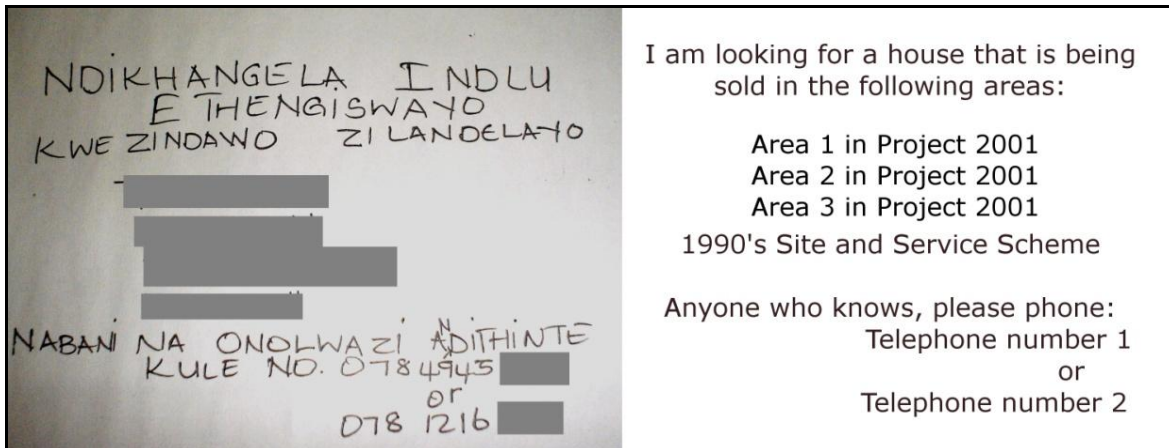 NDIKHANGELA INDLU
ETHENGISWAYO
KWEZINDAWO ZILANDELAYO
NABANI NA ONOLWAZI ANDITHINTE
KULE NO. 078 4945
or
078 1216
I am looking for a house that is being
sold in the following areas:
Area 1 in Project 2001
Area 2 in Project 2001
Area 3 in Project 2001
1990's Site and Service Scheme
Anyone who knows, please phone:
Telephone number 1
or
Telephone number 2